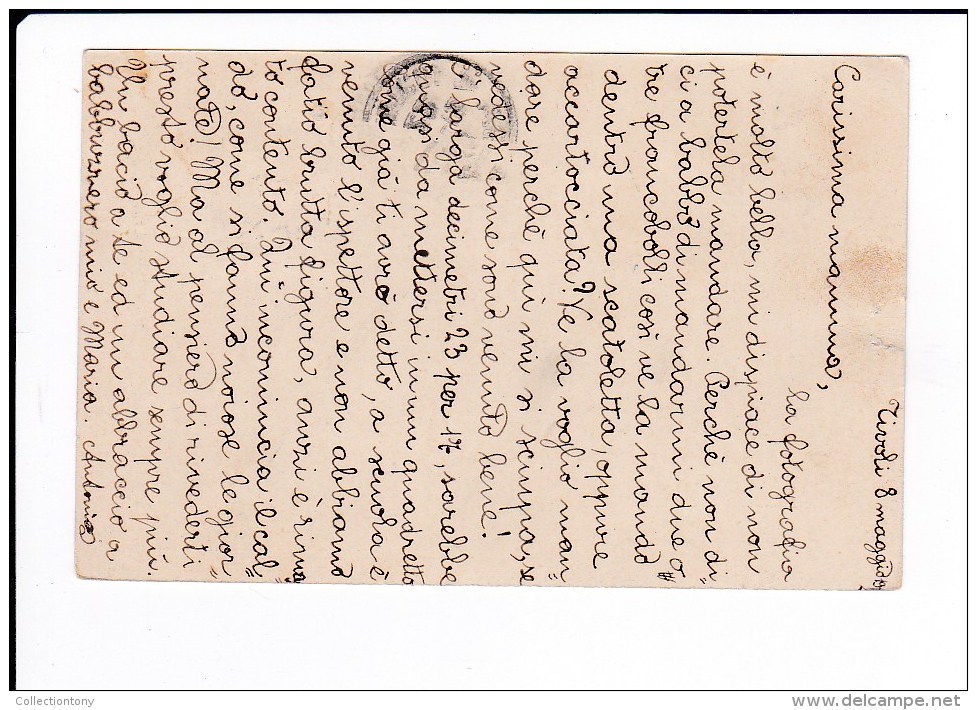 Tivoli 8 maggio
Carissima mamma,
La fotografia
è molto bella, mi dispiace di non
potertela mandare. Perchè non di=
ci a babbo di mandarmi due o
tre francobolli così ve la mando
dentro una scatoletta, oppure
accartocciata? Ve la voglio man=
dare perchè qui mi si sciupa, se
vedessi come sono venuto bene!
È larga decimetri 23 per 17, sarebbe
quasi da mettersi in un quadretto
Come già ti avrò detto, a scuola è
venuto l'ispettore e non abbiamo
fatto brutta figura, anzi è rima=
to contento. Qui incomincia il cal=
do, come si fanno noiose le gior=
nate! Ma al pensiero di rivederti
presto voglio studiare sempre più.
Un bacio a te ed un abbraccio a
babbuzzero mio e Maria. Antonio
Collectiontony
delcampe.net